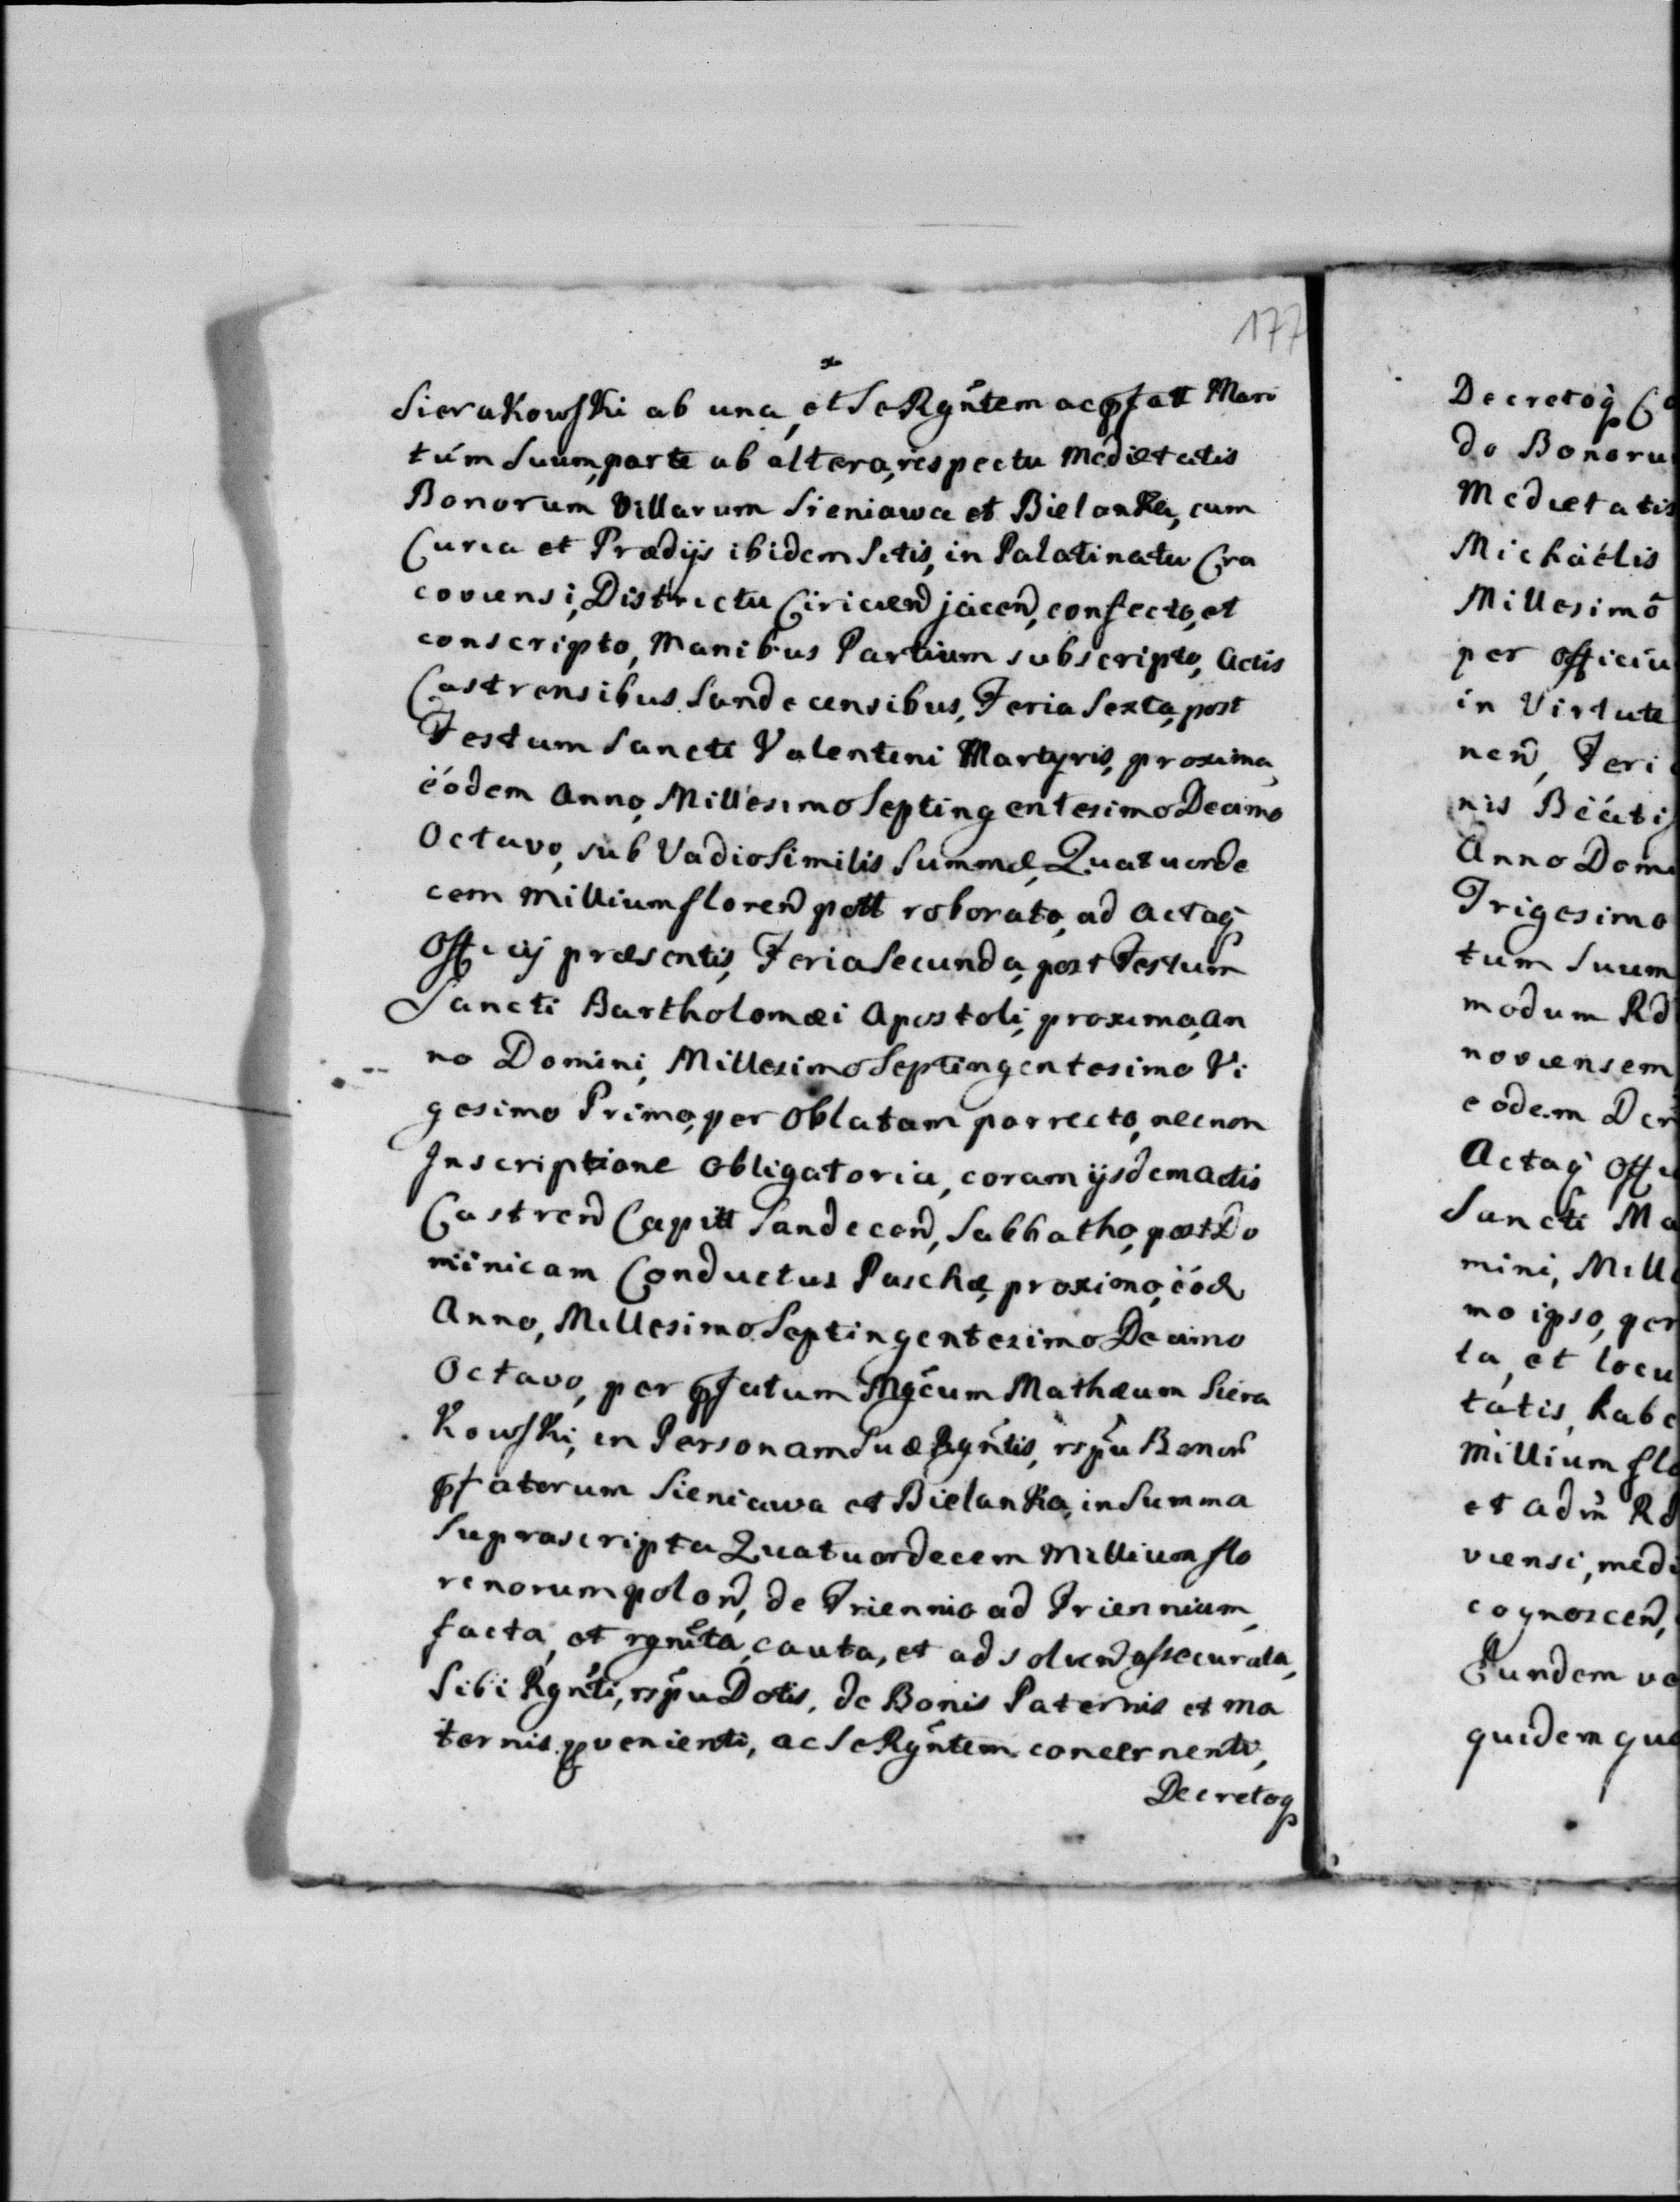 177
Sierakowski ab una, et Se Rgñtem ac pfatt Mari
tum Suum, parte ab altera, respectu Medietatis
Bonorum Villarum Sieniawa et Bielanka, cum
Curia et Prædijs ibidem Sitis, in Palatinatu Cra
coviensi, Districtu Ciricien̄ jacen̄, confecto, et
conscripto, Manibus Partium subscripto, Actis
Castrensibus Sandecensibus, Feria Sexta, post
Festum Sancti Valentini Martyris, proxima,
eódem Anno, Millesimo Septingentesimo Decimo
Octavo, sub Vadio Similis Summæ, Quatuorde
cem Millium floren̄ pott roborato, ad Actaq
Officij præsentis, Feria Secunda, post Festum
Sancti Bartholomæi Apostoli, proxima, An
no Domini, Millesimo Septingentesimo Vi
gesimo Primo, per Oblatam porrecto, necnon
Inscriptione Obligatoria, coram ijsdem Actis
Castren̄ Capitt Sandecen̄, Sabbatho, post Do
minicam Conductus Paschæ, proximo, eód
Anno, Millesimo Septingentesimo Decimo
Octavo, per pfatum Mgcum Mathæum Siera
Kowski, in Personam Suæ Rgñtis, rspu Bonor̄
pfatorum Sieniawa et Bielanka, in Summa
Suprascripta Quatuordecem Millium flo
renorum polon̄, de Triennio ad Triennium,
facta, et rgnita, cauta, et ad solven̄ assecurata,
Sibi Rgñti, rspu Dotis, de Bonis Paternis et Ma
ternis pvenienti, ac Se Rgñtem concernenti,
Decretoq
Decretoq Co
do Bonoru
Medietatis
Michaélis
Millesimō
per Officiu
in Virtute
nen̄, Feri
nis Beáti
Anno Domi
Trigesimo
tum Suum
modum Rd
noviensem
eodem
Actaq Offi
Sancti Ma
mini, Mill
mo ipso, per
ta, et locu
tatis, habe
Millium flo
et adm̄ Rd
viensi, medi
cognoscen̄,
Eundem ve
quidem qua